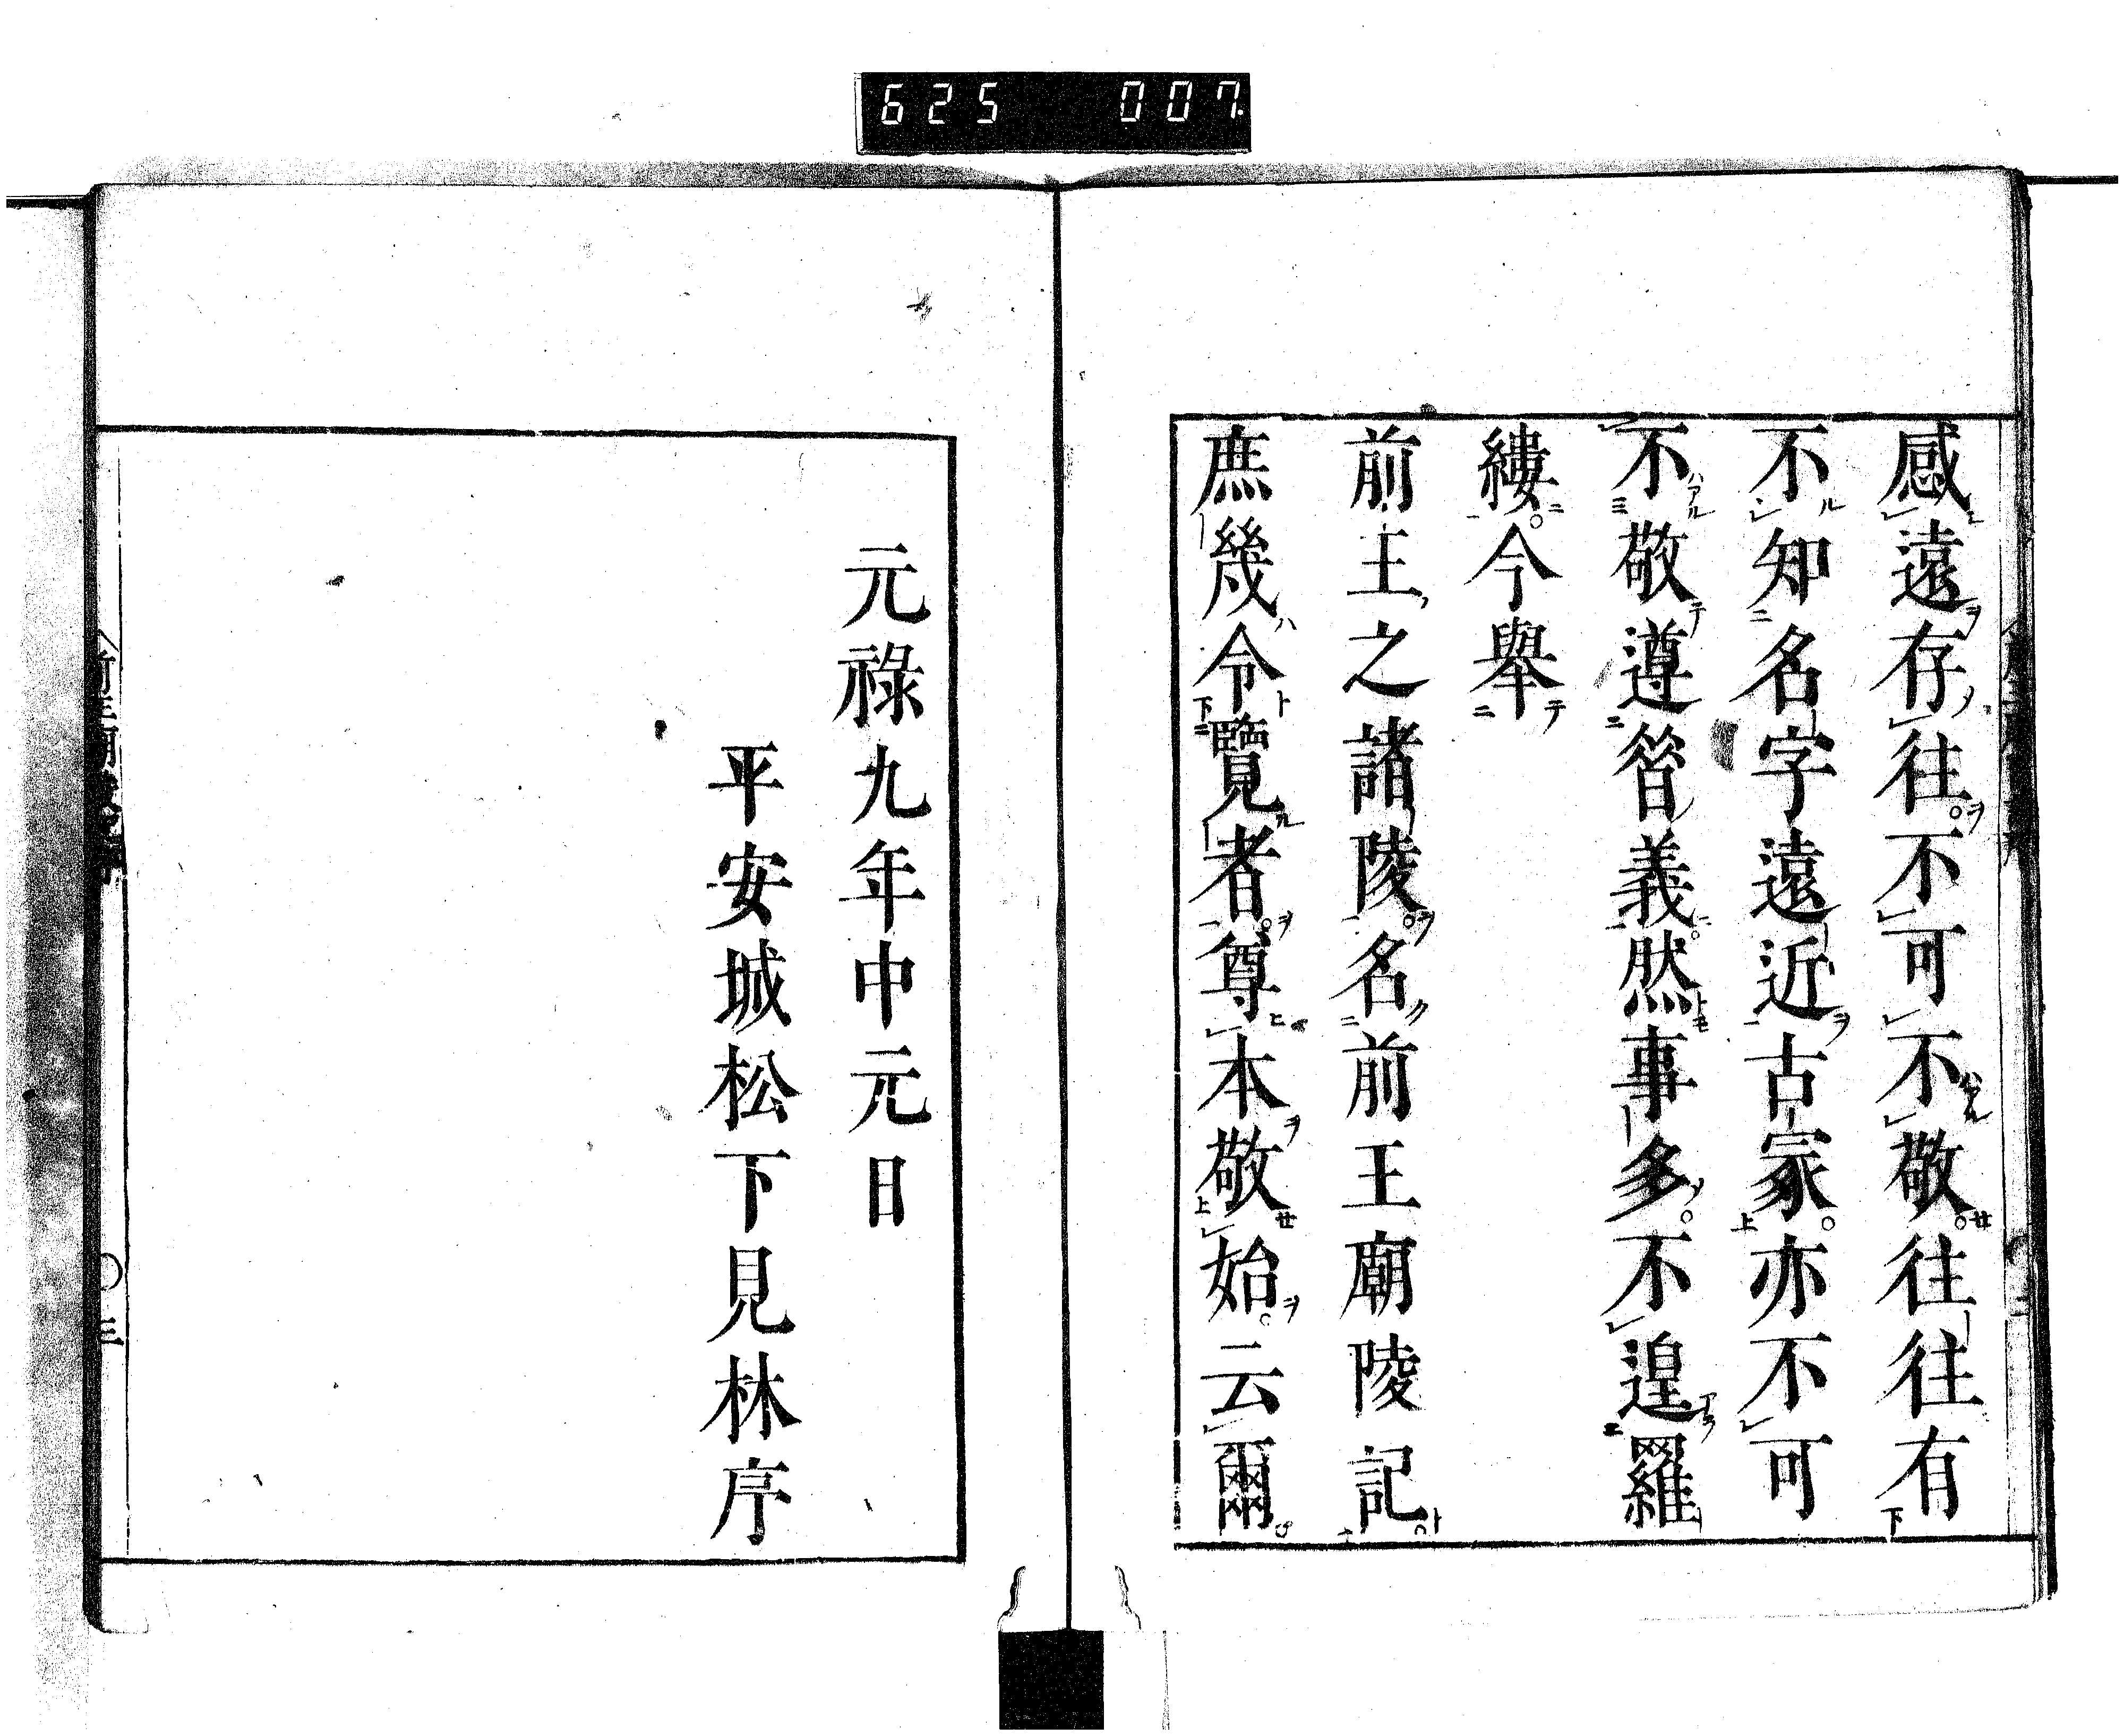 625 007
感遠存往。不可不敬。往往有
不知名字遠近古冢。亦不可
不敬遵簪義。然事多。不遑羅
縷。今舉
前王之諸陵。名前王廟陵記。
庶幾令覽者。尊本敬始。云爾。
元祿九年中元日
平安城松下見林序
三